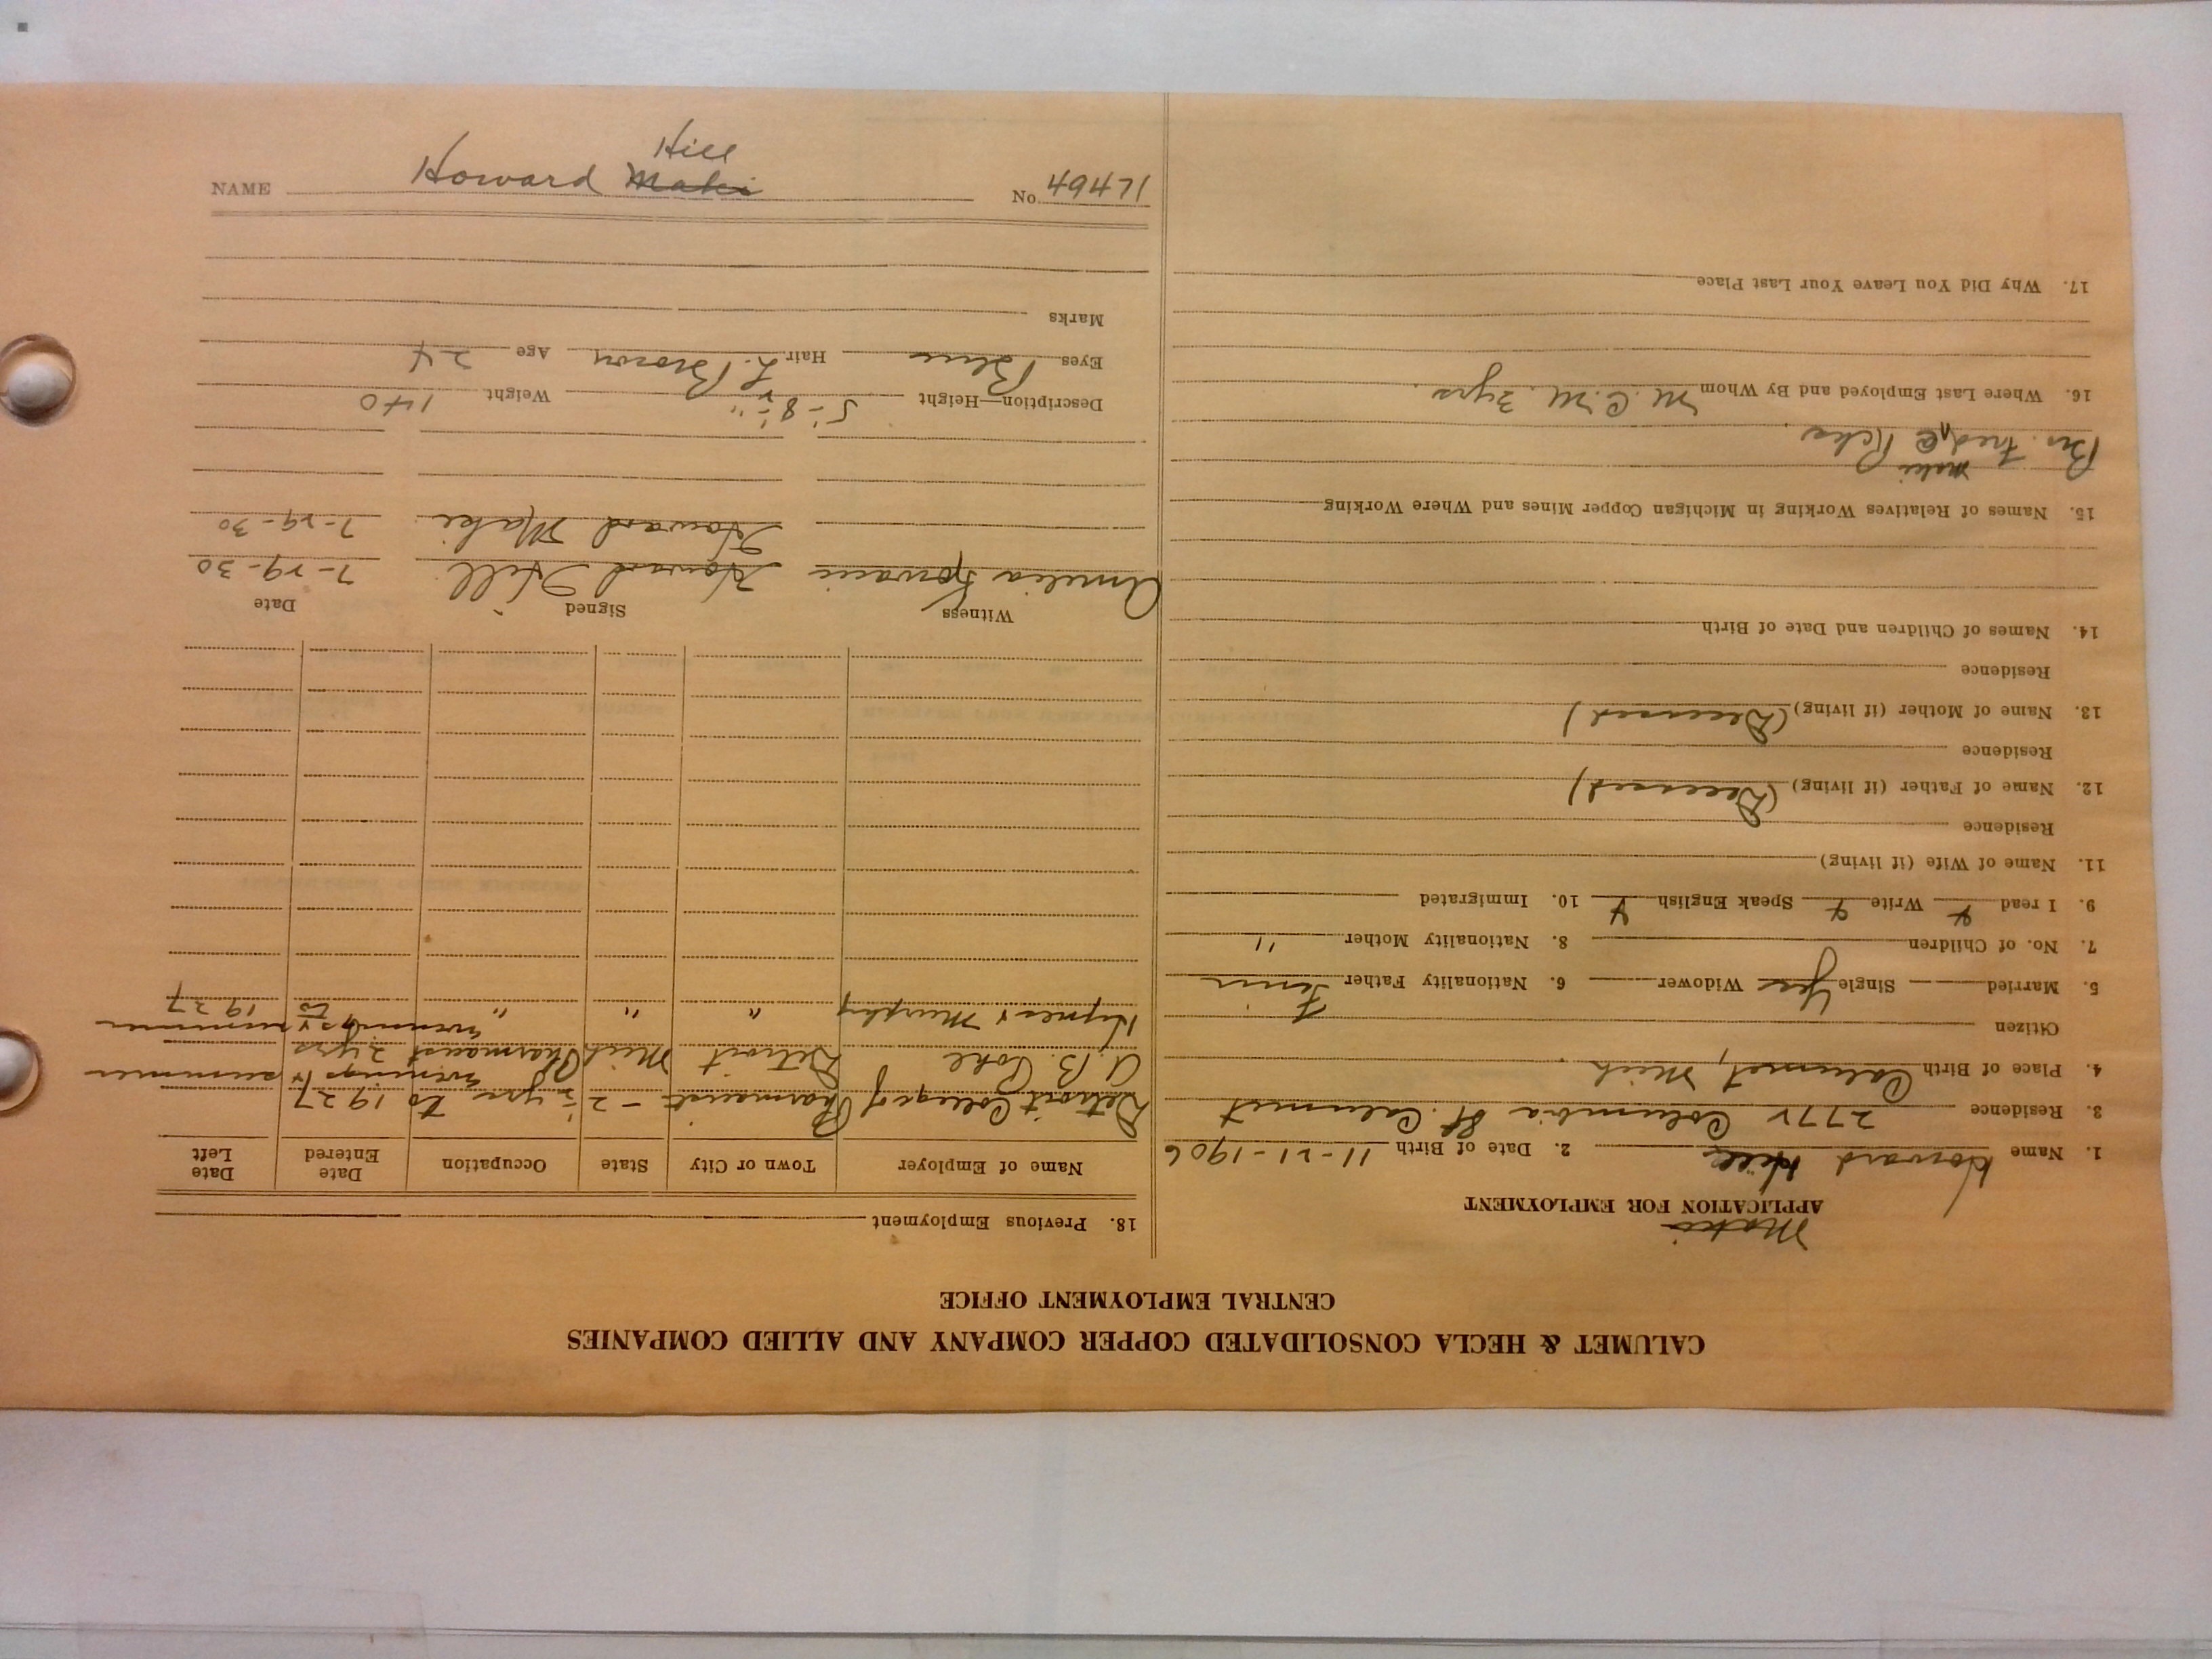 CALUMET & HECLA CONSOLIDATED COPPER COMPANY AND ALLIED COMPANIES
CENTRAL EMPLOYMENT OFFICE
Maki
APPLICATION FOR EMPLOYMENT
1. Name Howard Hill 2. Date of Birth 11-21-1906
3. Residence 2772 Columbia St. Calumet
4. Place of Birth Calumet, Mich
Citizen
5. Married Single Yes Widower 6. Nationality Father Finn
7. No. of Children 8. Nationality Mother "
9. I read Y Write Y Speak English Y 10. Immigrated
11. Name of Wife (if living)
Residence
12. Name of Father (if living) (Deceased)
Residence
13. Name of Mother (if living) (Deceased)
Residence
14. Names of Children and Date of Birth
15. Names of Relatives Working in Michigan Copper Mines and Where Working
Maki
Bro. Fred, @
16. Where Last Employed and By Whom M.C.M. 3yrs.
17. Why Did You Leave Your Last Place
18. Previous Employment
Name of Employer Town or City State Occupation Date Entered Date Left
Detroit College of Pharmacist - 2 ½ yrs to 1927
evenings & summer
A.B. Cohl Detroit Mich Pharmacist 2 yrs
evenings & summer
& Murphy " " " to 1927
Witness Signed Date
Amelia Howard Hill 7-29-30
Howard Maki 7-29-30
Description—Height 5'-8½" Weight 140
Eyes Blue Hair L. Brown Age 24
Marks
Hill
NAME Howard Maki No. 17494